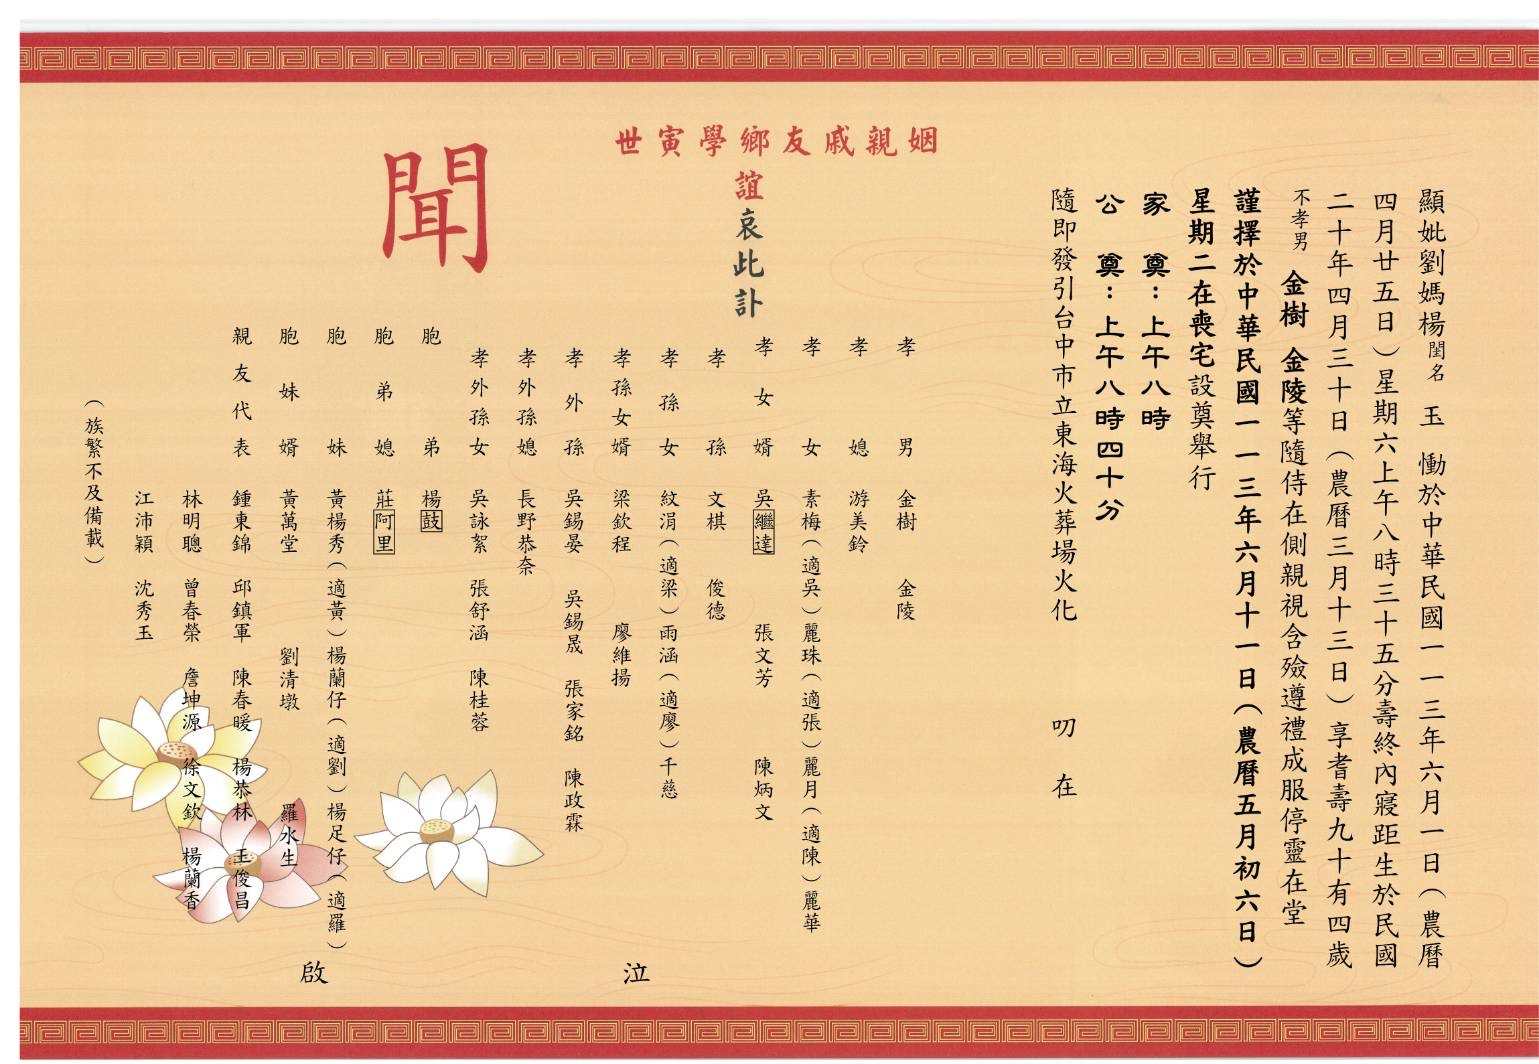 顯妣劉媽楊閨名 玉 慟於中華民國一一三年六月一日(農曆
四月廿五日)星期六上午八時三十五分壽終內寢距生於民國
二十年四月三十日(農曆三月十三日)享耆壽九十有四歲
不孝男 金樹 金陵等隨侍在側親視含殮遵禮成服停靈在堂
謹擇於中華民國一一三年六月十一日(農曆五月初六日)
星期二在喪宅設奠舉行
家 奠:上午八時
公 奠:上午八時四十分
隨即發引台中市立東海火葬場火化 叨 在
姻親戚友鄉學寅世
誼哀此訃
聞
孝男 金樹 金陵
孝媳 游美鈴
孝女 素梅(適吳)麗珠(適張)麗月(適陳)麗華
孝女婿 吳繼達 張文芳 陳炳文
孝孫 文棋 俊德
孝孫女 紋涓(適梁)雨涵(適廖)千慈
孝孫女婿 梁欽程 廖維揚
孝外孫 吳錫晏 吳錫晟 張家銘 陳政霖
孝外孫媳 長野恭奈
孝外孫女 吳詠絮 張舒涵 陳桂蓉
胞弟 楊鼓
胞弟媳 莊阿里
胞妹 黃楊秀(適黃)楊蘭仔(適劉)楊足仔(適羅)
胞妹婿 黃萬堂 劉清墩 羅水生
親友代表 鍾東錦 邱鎮軍 陳春暖 楊恭林 王俊昌
林明聰 曾春榮 詹坤源 徐文欽 楊蘭香
江沛穎 沈秀玉
(族繁不及備載)
泣
啟